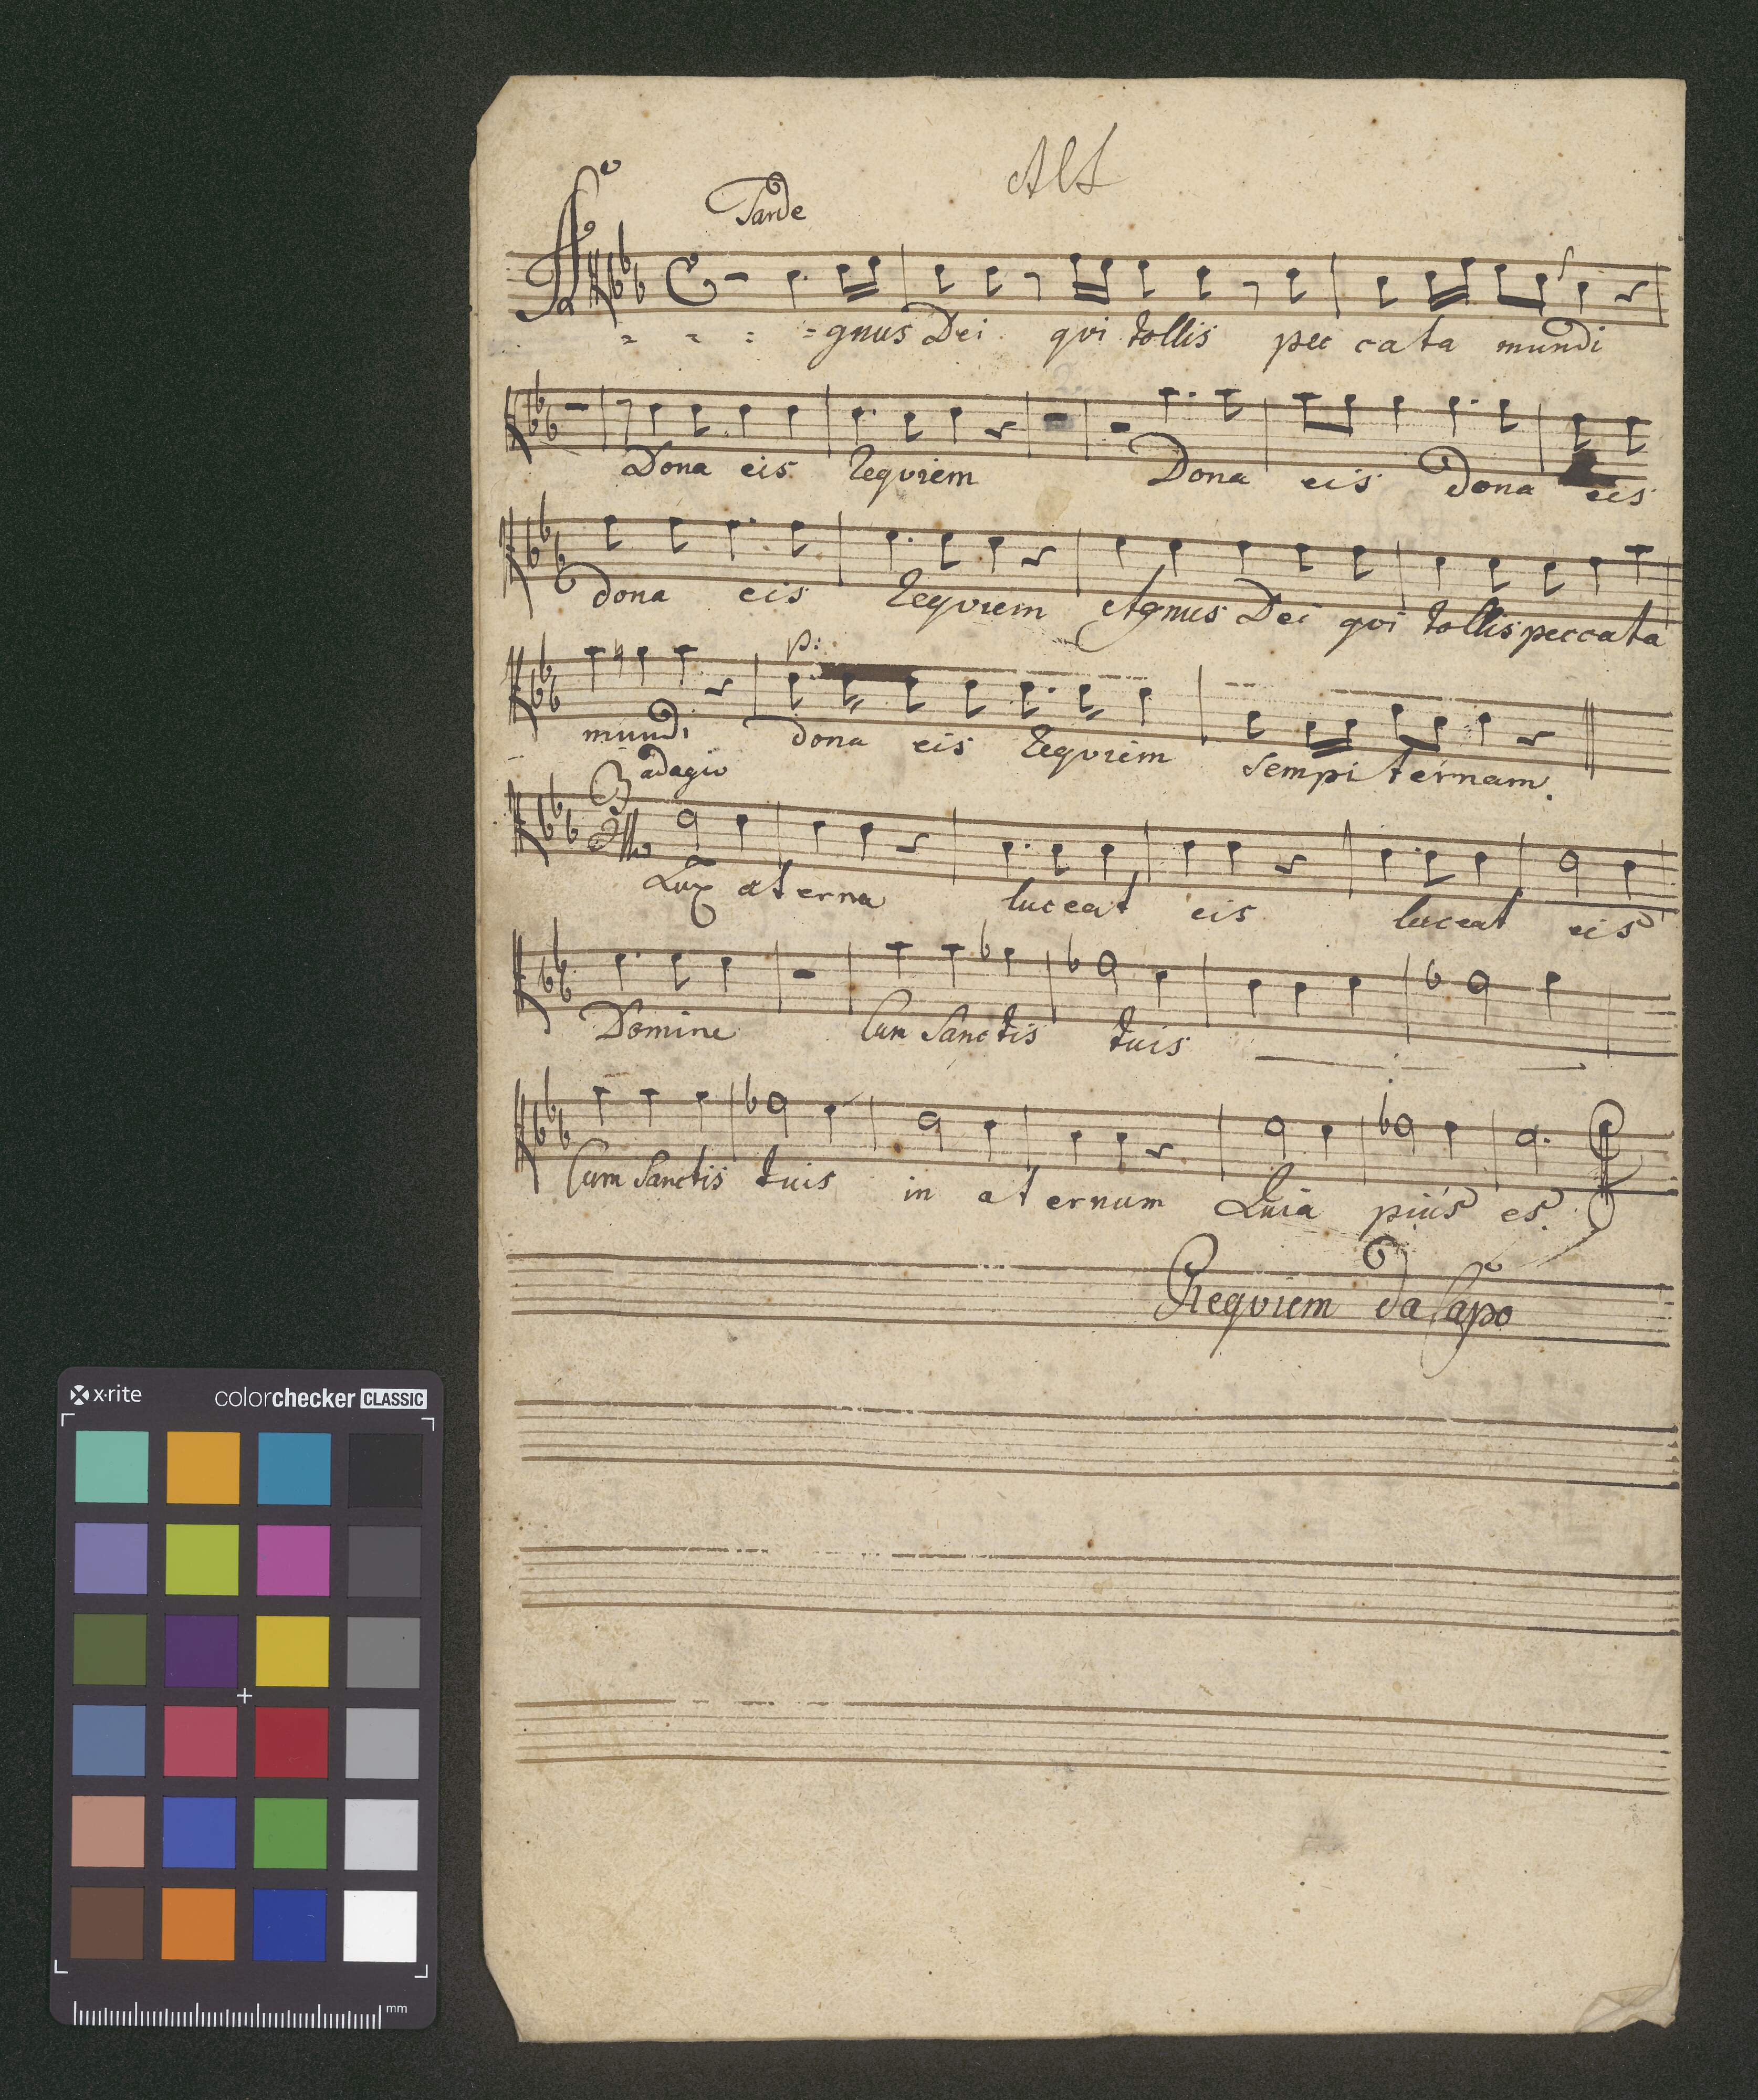 Alt
Tarde
A - - - gnus Dei qvi tollis pec cata mundi
Dona eis Reqviem Dona eis dona eis
dona eis Reqviem Agnus Dei qvi tollis peccata
p:
mundi dona eis Reqviem sempi ternam.
adagio
Lux æterna luceat eis luceat eis
Domine Cum Sanctis tuis
Cum Sanctis tuis in æternum Quia pius es.
Reqviem da Capo
x·rite colorchecker CLASSIC
mm